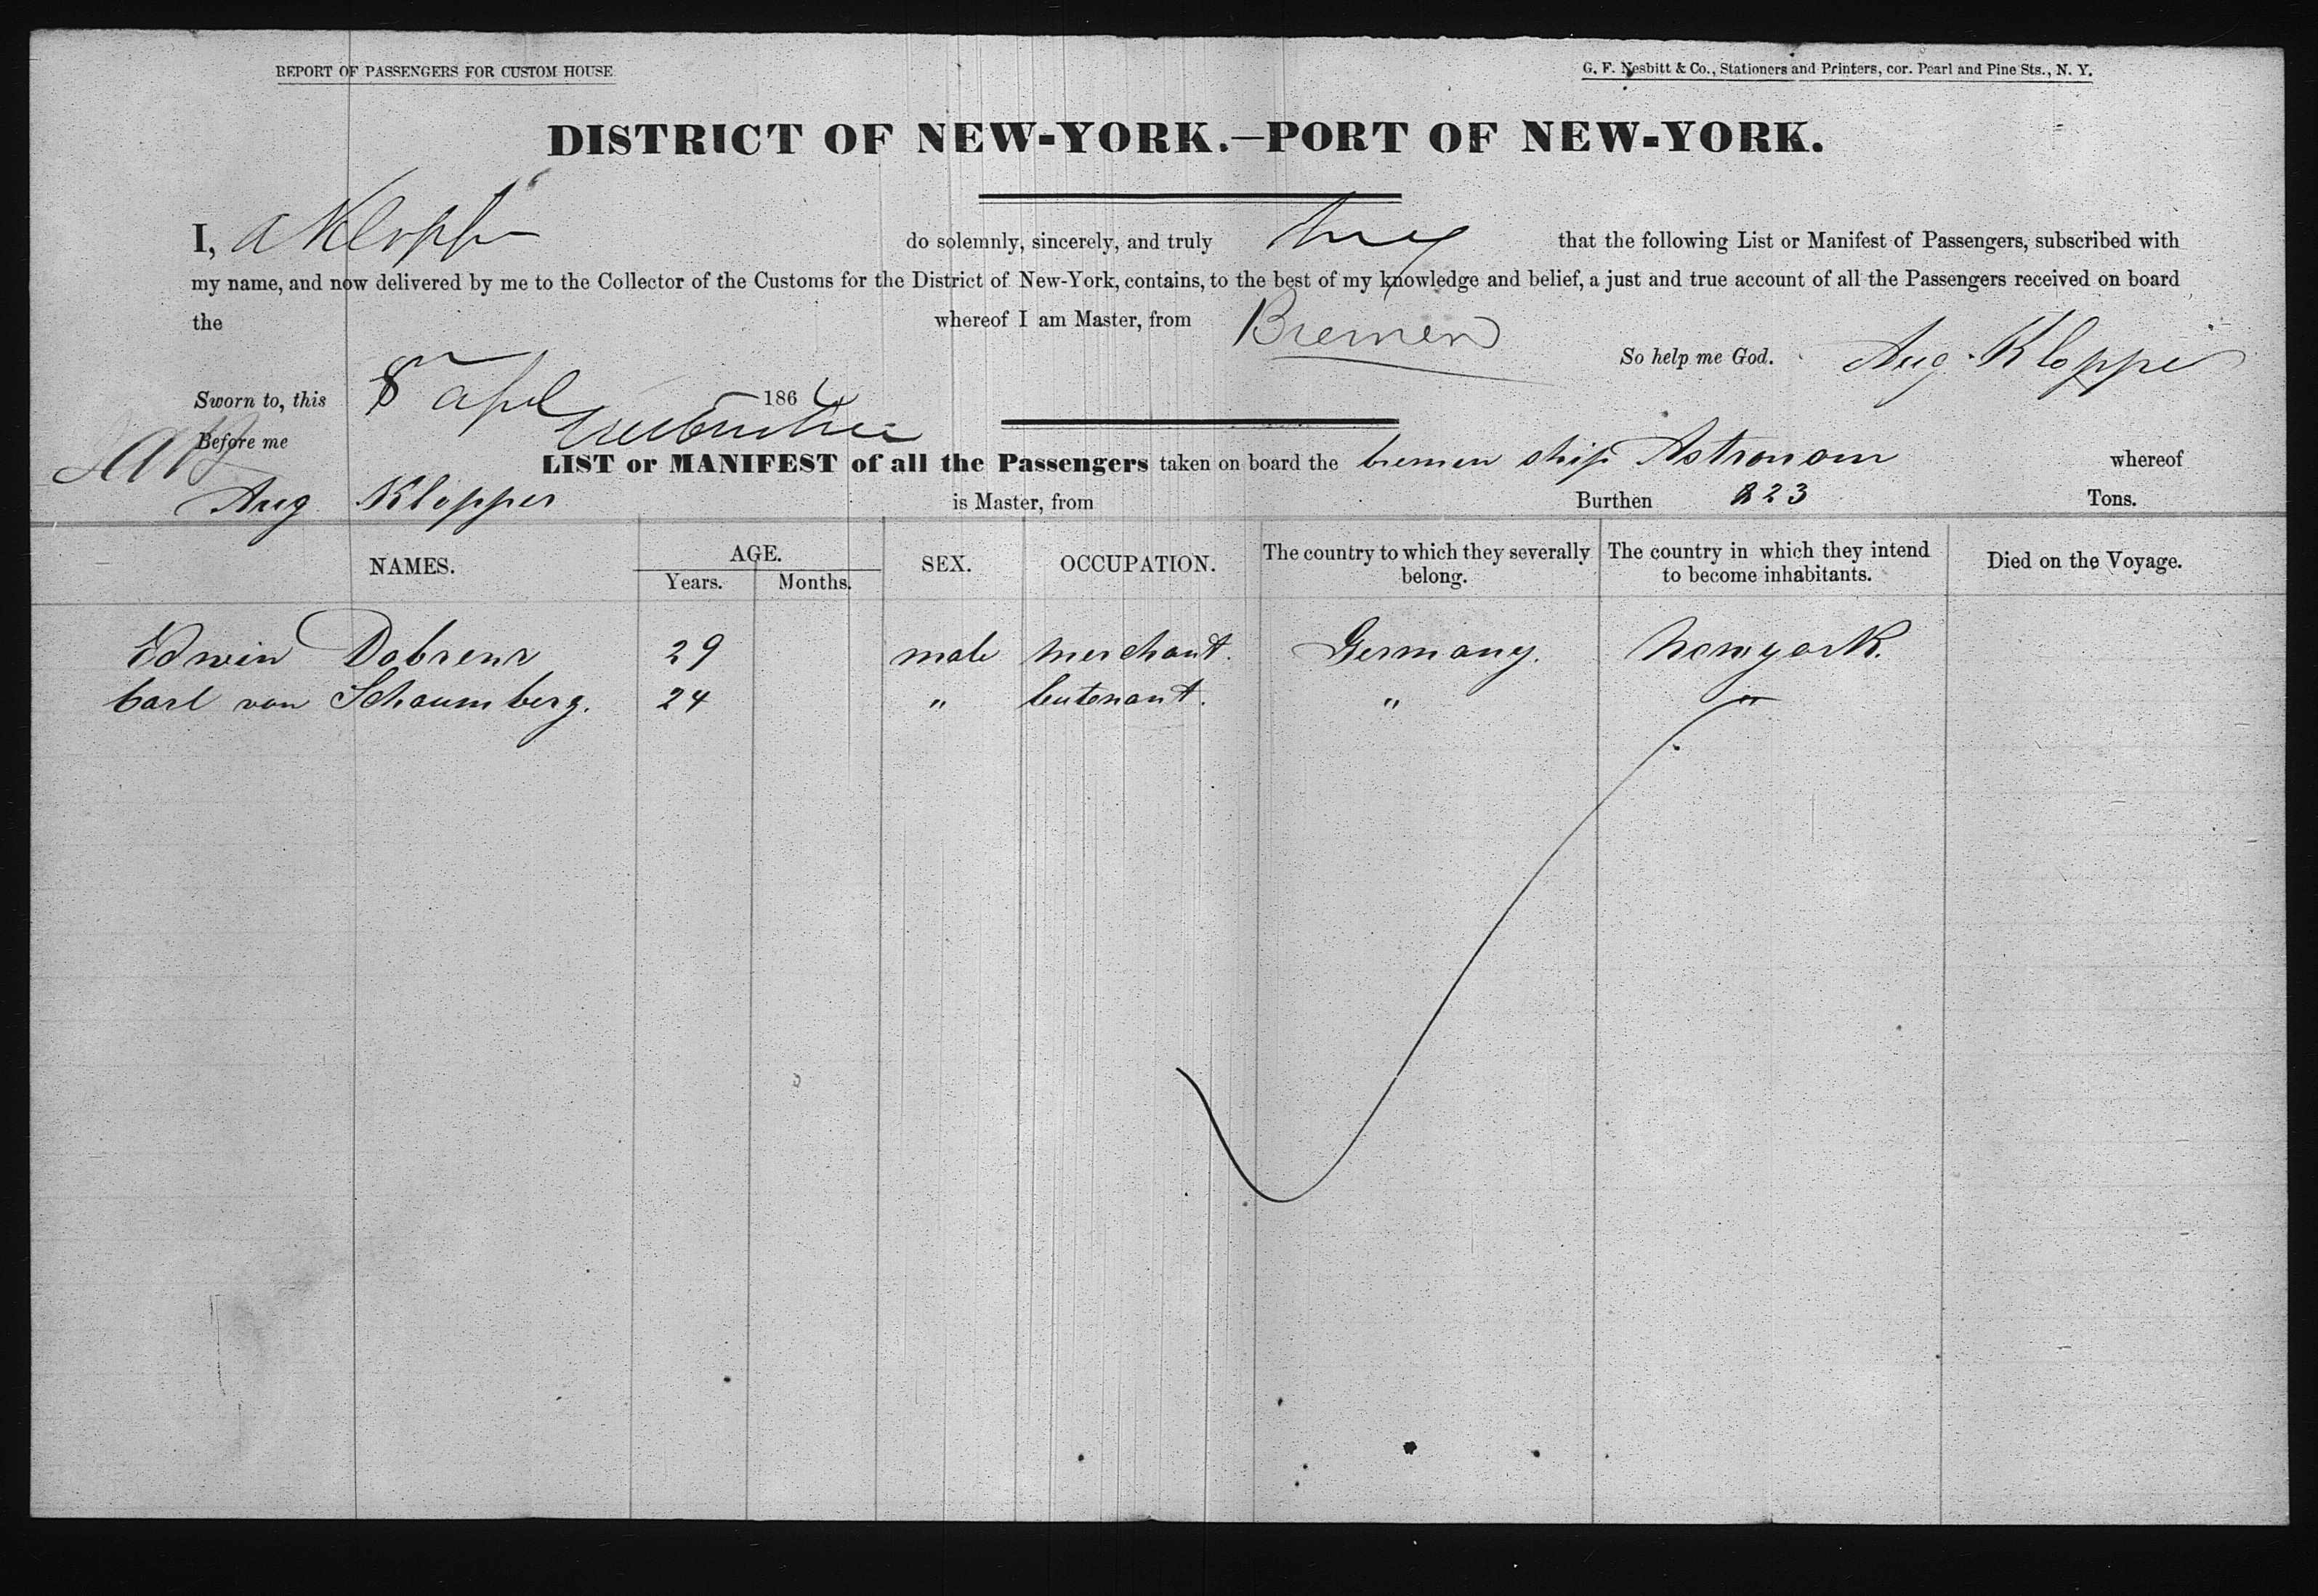 REPORT OF PASSENGERS FOR CUSTOM HOUSE.
G. F. Nesbitt & Co., Stationers and Printers, cor. Pearl and Pine Sts., N. Y.
DISTRICT OF NEW-YORK.—PORT OF NEW-YORK.
I, A Klopper do solemnly, sincerely, and truly that the following List or Manifest of Passengers, subscribed with
my name, and now delivered by me to the Collector of the Customs for the District of New-York, contains, to the best of my knowledge and belief, a just and true account of all the Passengers received on board
the whereof I am Master, from Bremen
So help me God. Aug. Klopper
Sworn to, this 8 Apl 186
Before me
LIST or MANIFEST of all the Passengers taken on board the bremen ship Astronom whereof
Aug Klopper is Master, from Burthen 823 Tons.
NAMES. AGE. Years. Months. SEX. OCCUPATION. The country to which they severally belong. The country in which they intend to become inhabitants. Died on the Voyage.
Edwin Dobrenr 29 male merchant. Germany. Newyork.
Carl von Schaumberg. 24 " leutenant. " "